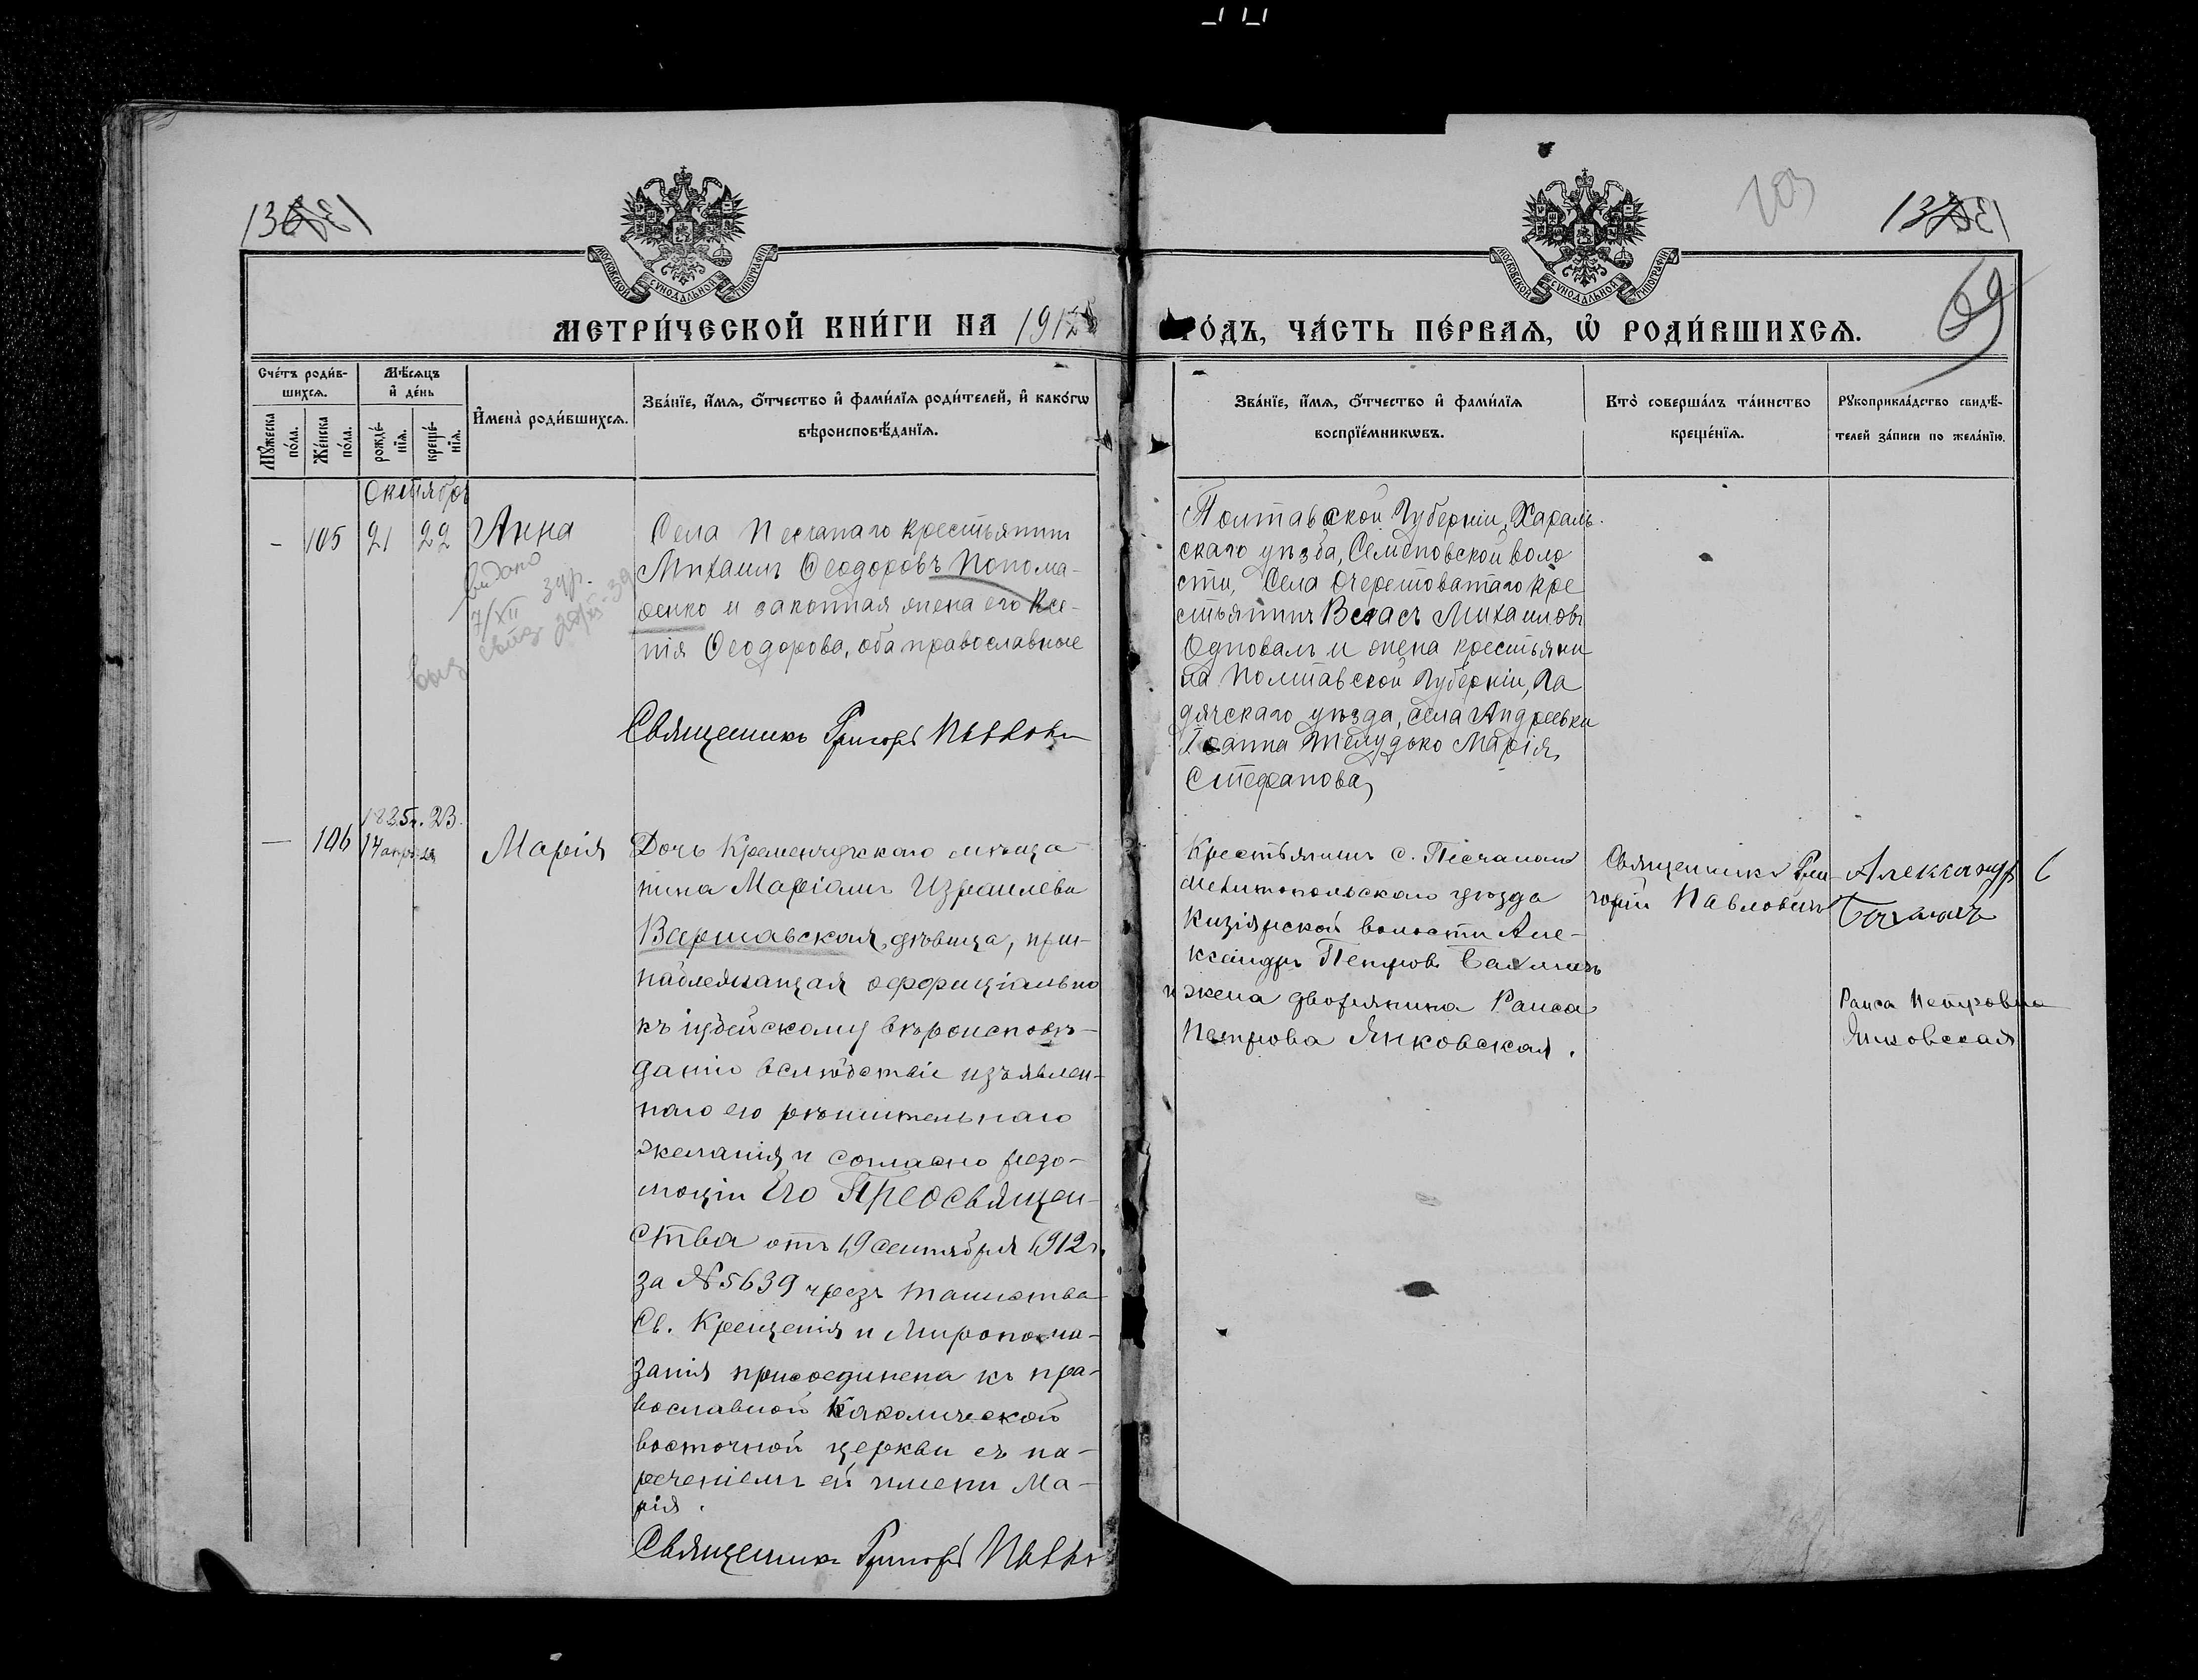 МОСКОВСКОЙ СУНОДАЛЬНОЙ ТИПОГРАФІИ
МЕТРИ́ЧЕСКОЙ КНИ́ГИ НА 1912
Сче́тъ роди́в-
шихсѧ.
Мꙋ́жеска по́ла.
Же́нска по́ла.
Мѣ́сѧцъ
и҆ де́нь
рожде́-
нїѧ.
креще́-
нїѧ.
И҆мена̀ роди́вшихсѧ.
Зва́нїе, и҆́мѧ, ѻ҆́тчество и҆ фами́лїѧ роди́телей, и҆ како́гѡ
вѣроисповѣ́данїѧ.
Октябрь
- 105 21 22 Анна
Села Песчанаго крестьянинъ
Михаилъ Ѳеодоровъ Понома-
ренко и законная жена его Ксе-
нія Ѳеодорова, оба православные
видано
7/XII 39 р.
Священникъ Григорій Павловичъ
— 106
1835г. 23.
14 апрѣля
Марія
Дочь Кременчугскаго мѣща-
нина Маріамъ Израилева
Варшавская, дѣвица, при-
надлежащая оффиціально
къ іудейскому вѣроисповѣ-
данію вслѣдствіе изъявлен-
наго ею рѣшительнаго
желанія и согласно резо-
люціи Его Преосвящен-
ства отъ 19 сентября 1912г.
за № 5639 чрезъ таинства
Св. Крещенія и Миропома-
занія присоединена къ пра-
вославной Каѳолической
восточной церкви съ на-
реченіемъ ей имени Ма-
рія.
Священникъ Григорій Павло
МОСКОВСКОЙ СУНОДАЛЬНОЙ ТИПОГРАФІИ
103
69
ГО́ДЪ, ЧА́СТЬ ПЕ́РВАѦ, Ѡ҆ РОДИ́ВШИХСѦ.
Зва́нїе, и҆́мѧ, ѻ҆́тчество и҆ фами́лїѧ
воспрїе́мникѡвъ.
Кто̀ соверша́лъ та́инство
креще́нїѧ.
Рꙋкоприкла́дство свидѣ́-
телей за́писи по жела́нїю.
Полтавской Губерніи, Хараль-
скаго уѣзда, Семеновской воло
сти, Села Очеретоватаго кре
стьянинъ Власъ Михаиловъ
Одновалъ и жена крестьяни
на Полтавской Губерніи, Га
дячскаго уѣзда, села Андреевки
Іоанна Желудько Марія
Стефанова,
Крестьянинъ с. Пѣсчанаго
Мелитопольскаго уѣзда
Кизіярской волости Але-
ксандръ Петровъ
и жена дворянина Раиса
Петрова Янковская.
Священникъ Гри-
горій Павловичъ
Александръ
Раиса Петровна
Янковская